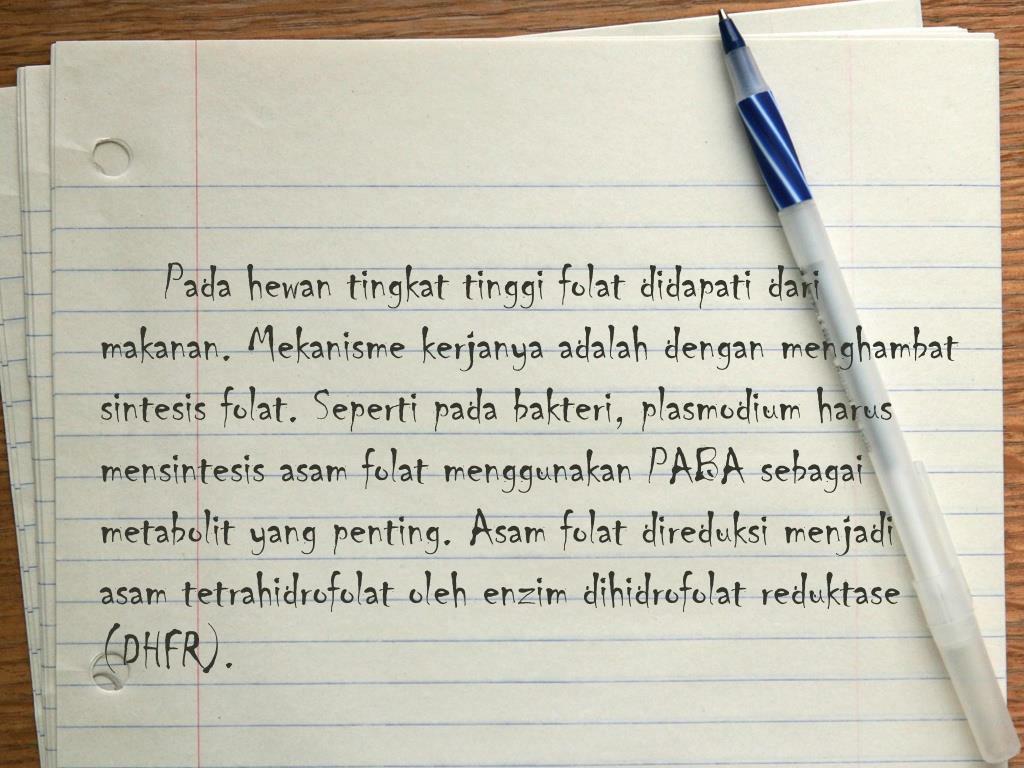 Pada hewan tingkat tinggi folat didapati dari
makanan. Mekanisme kerjanya adalah dengan menghambat
sintesis folat. Seperti pada bakteri, plasmodium harus
mensintesis asam folat menggunakan PABA sebagai
metabolit yang penting. Asam folat direduksi menjadi
asam tetrahidrofolat oleh enzim dihidrofolat reduktase
(DHFR).